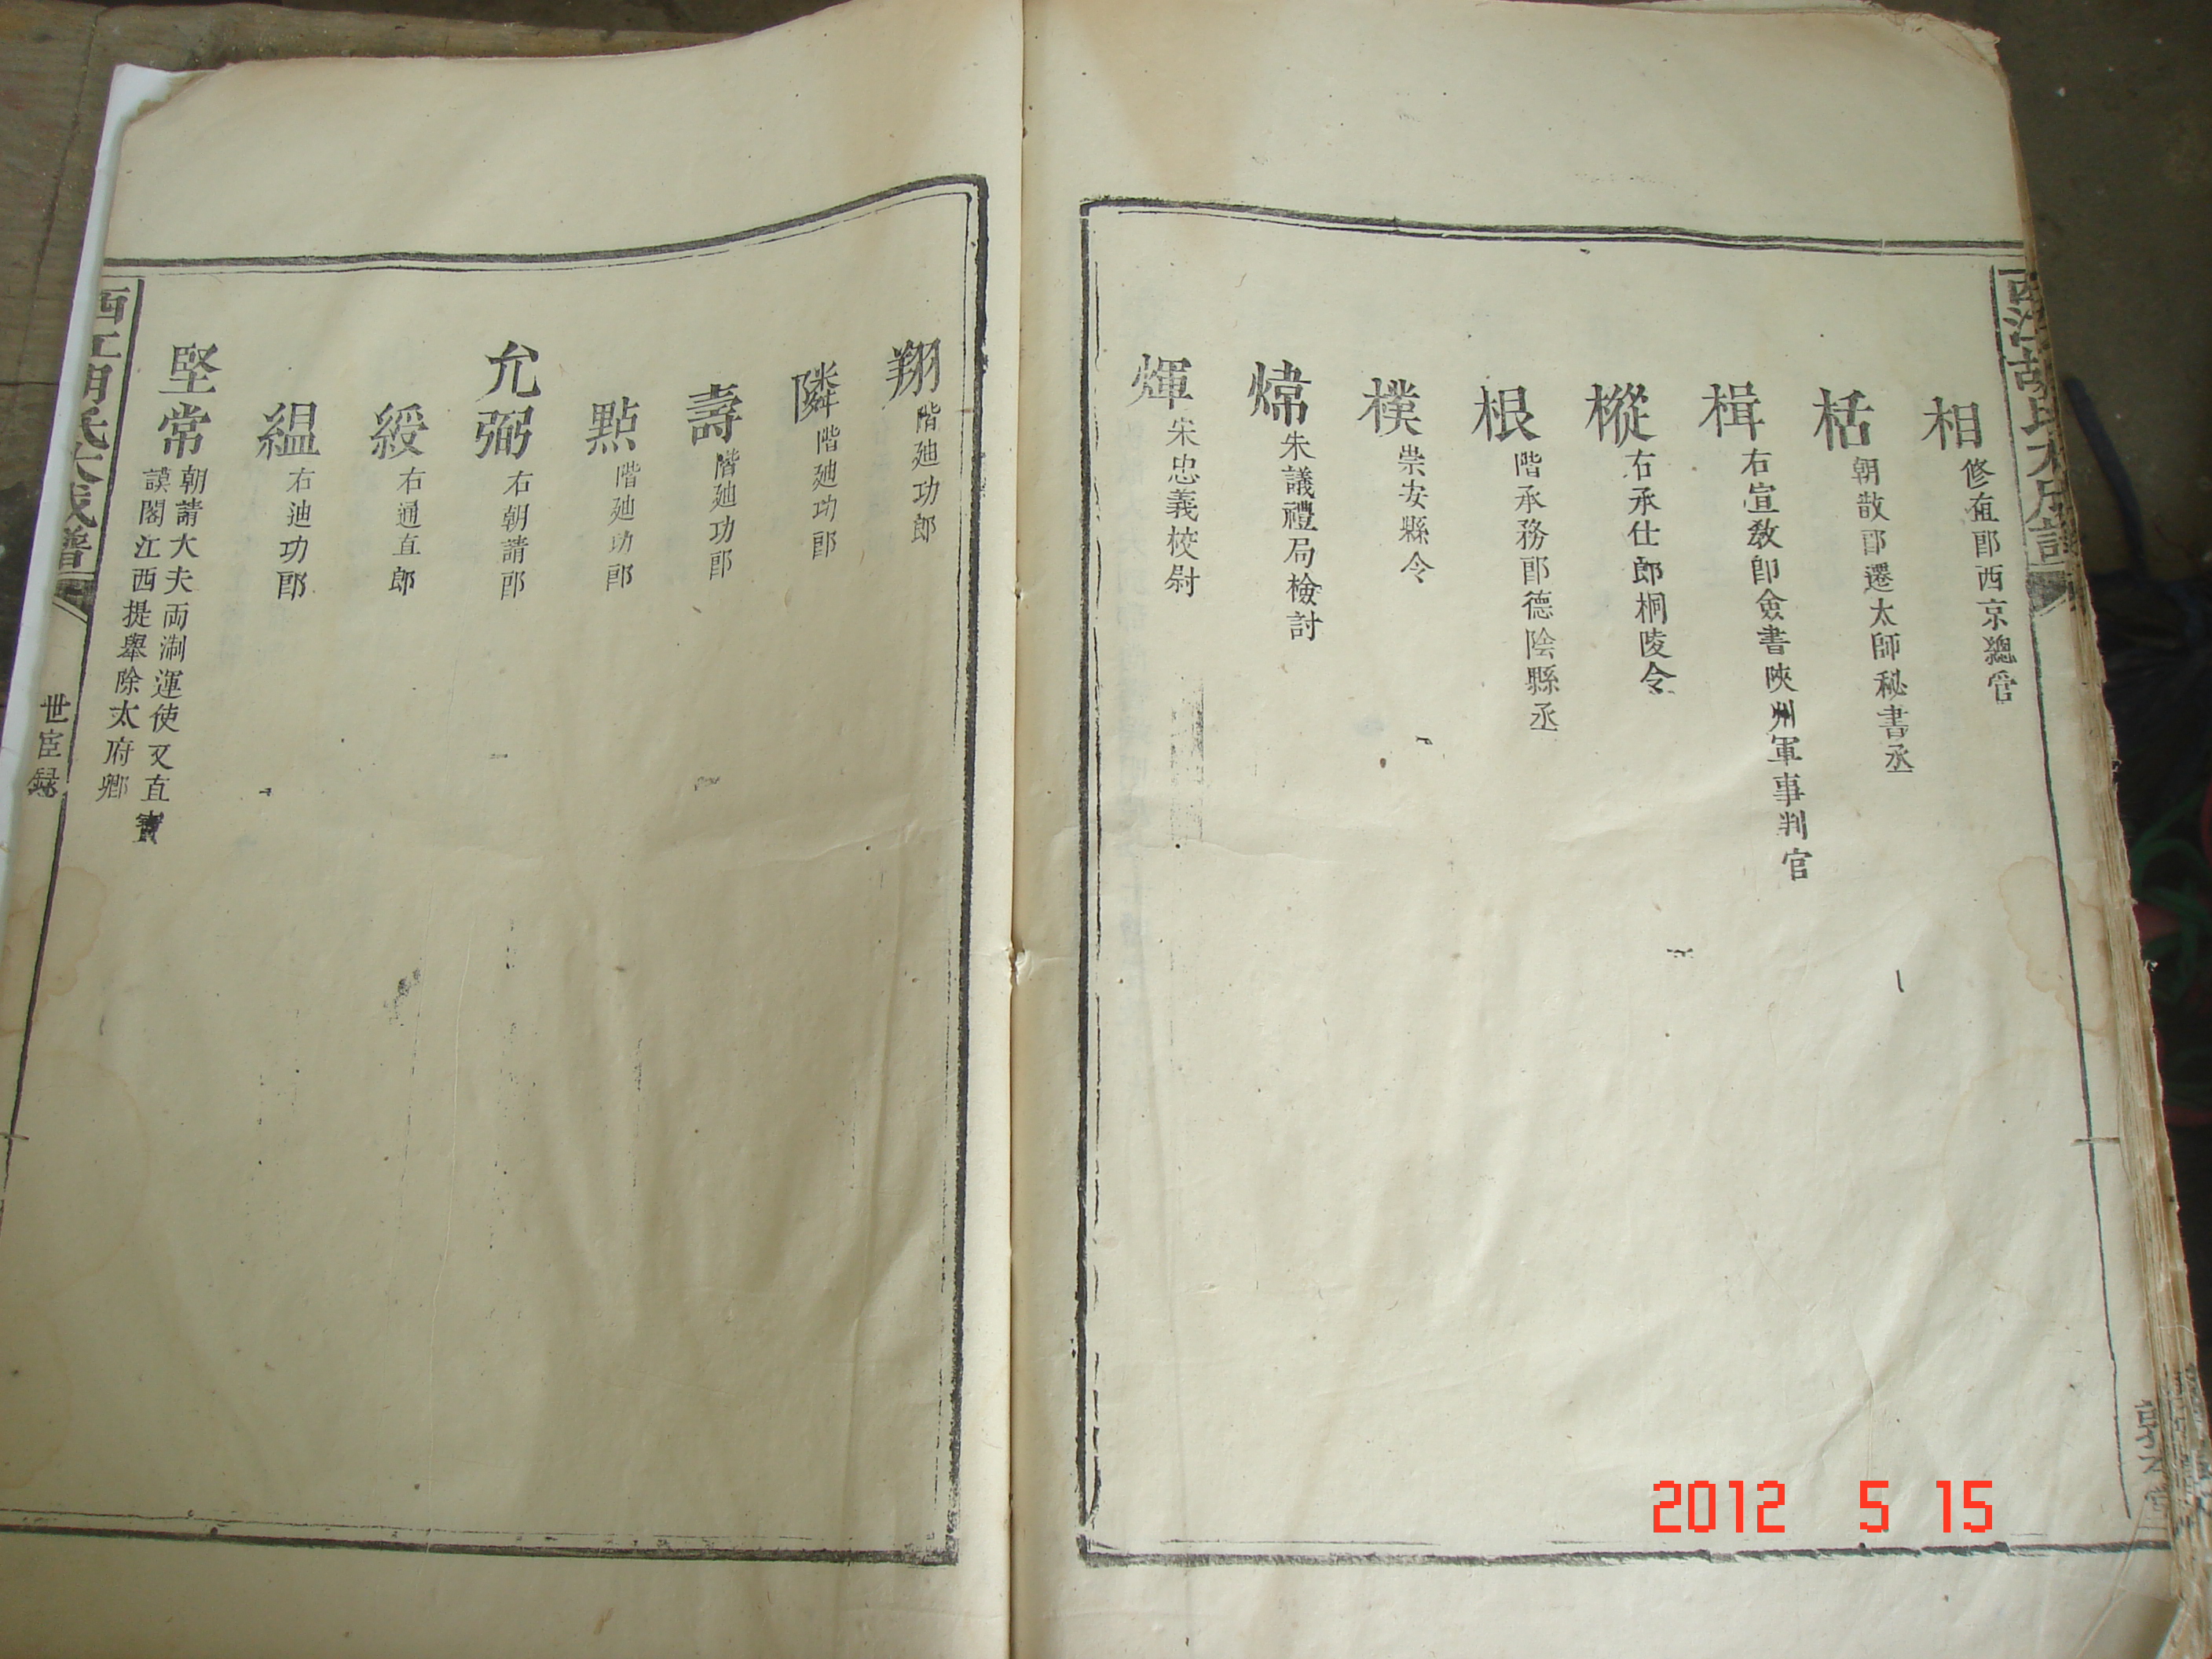 西江胡氏大成譜
相 修植郎西京總管
栝 朝散郎遷太師秘書丞
楫 右宣教郎僉書陝州軍事判官
樅 右承仕郎桐陵令
根 階承務郎德陰縣丞
樸 崇安縣令
煒 朱議禮局檢討
煇 宋忠義校尉
翔 階廸功郎
隣 階廸功郎
壽 階廸功郎
點 階廸功郎
允弼 右朝請郎
綬 右通直郎
緼 右迪功郎
堅常 朝請大夫両淛運使又直寶
謨閣江西提舉除太府卿
西江胡氏大成譜
世宦録
2012 5 15